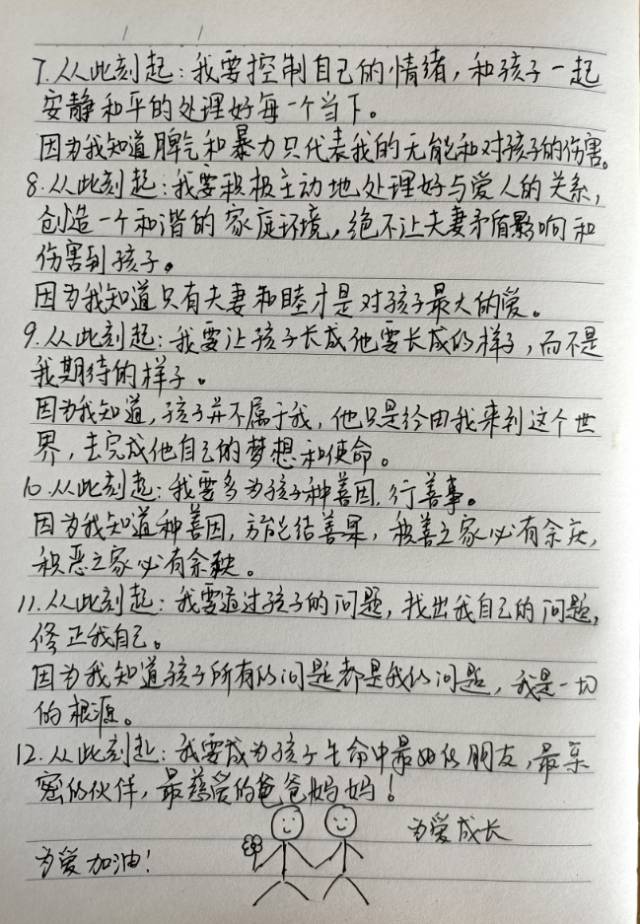 7.从此刻起:我要控制自己的情绪,和孩子一起
安静和平的处理好每一个当下。
因为我知道脾气和暴力只代表我的无能和对孩子的伤害。
8.从此刻起:我要积极主动地处理好与爱人的关系,
创造一个和谐的家庭环境,绝不让夫妻矛盾影响和
伤害到孩子。
因为我知道只有夫妻和睦才是对孩子最大的爱。
9.从此刻起:我要让孩子长成他要长成的样子,而不是
我期待的样子。
因为我知道,孩子并不属于我,他只是经由我来到这个世
界,去完成他自己的梦想和使命。
10.从此刻起:我要多为孩子种善因,行善事。
因为我知道种善因,方能结善果,积善之家必有余庆,
积恶之家必有余殃。
11.从此刻起:我要通过孩子的问题,找出我自己的问题,
修正我自己。
因为我知道孩子所有的问题都是我的问题,我是一切
的根源。
12.从此刻起:我要成为孩子生命中最好的朋友,最亲
密的伙伴,最慈爱的爸爸妈妈!
为爱成长
为爱加油!